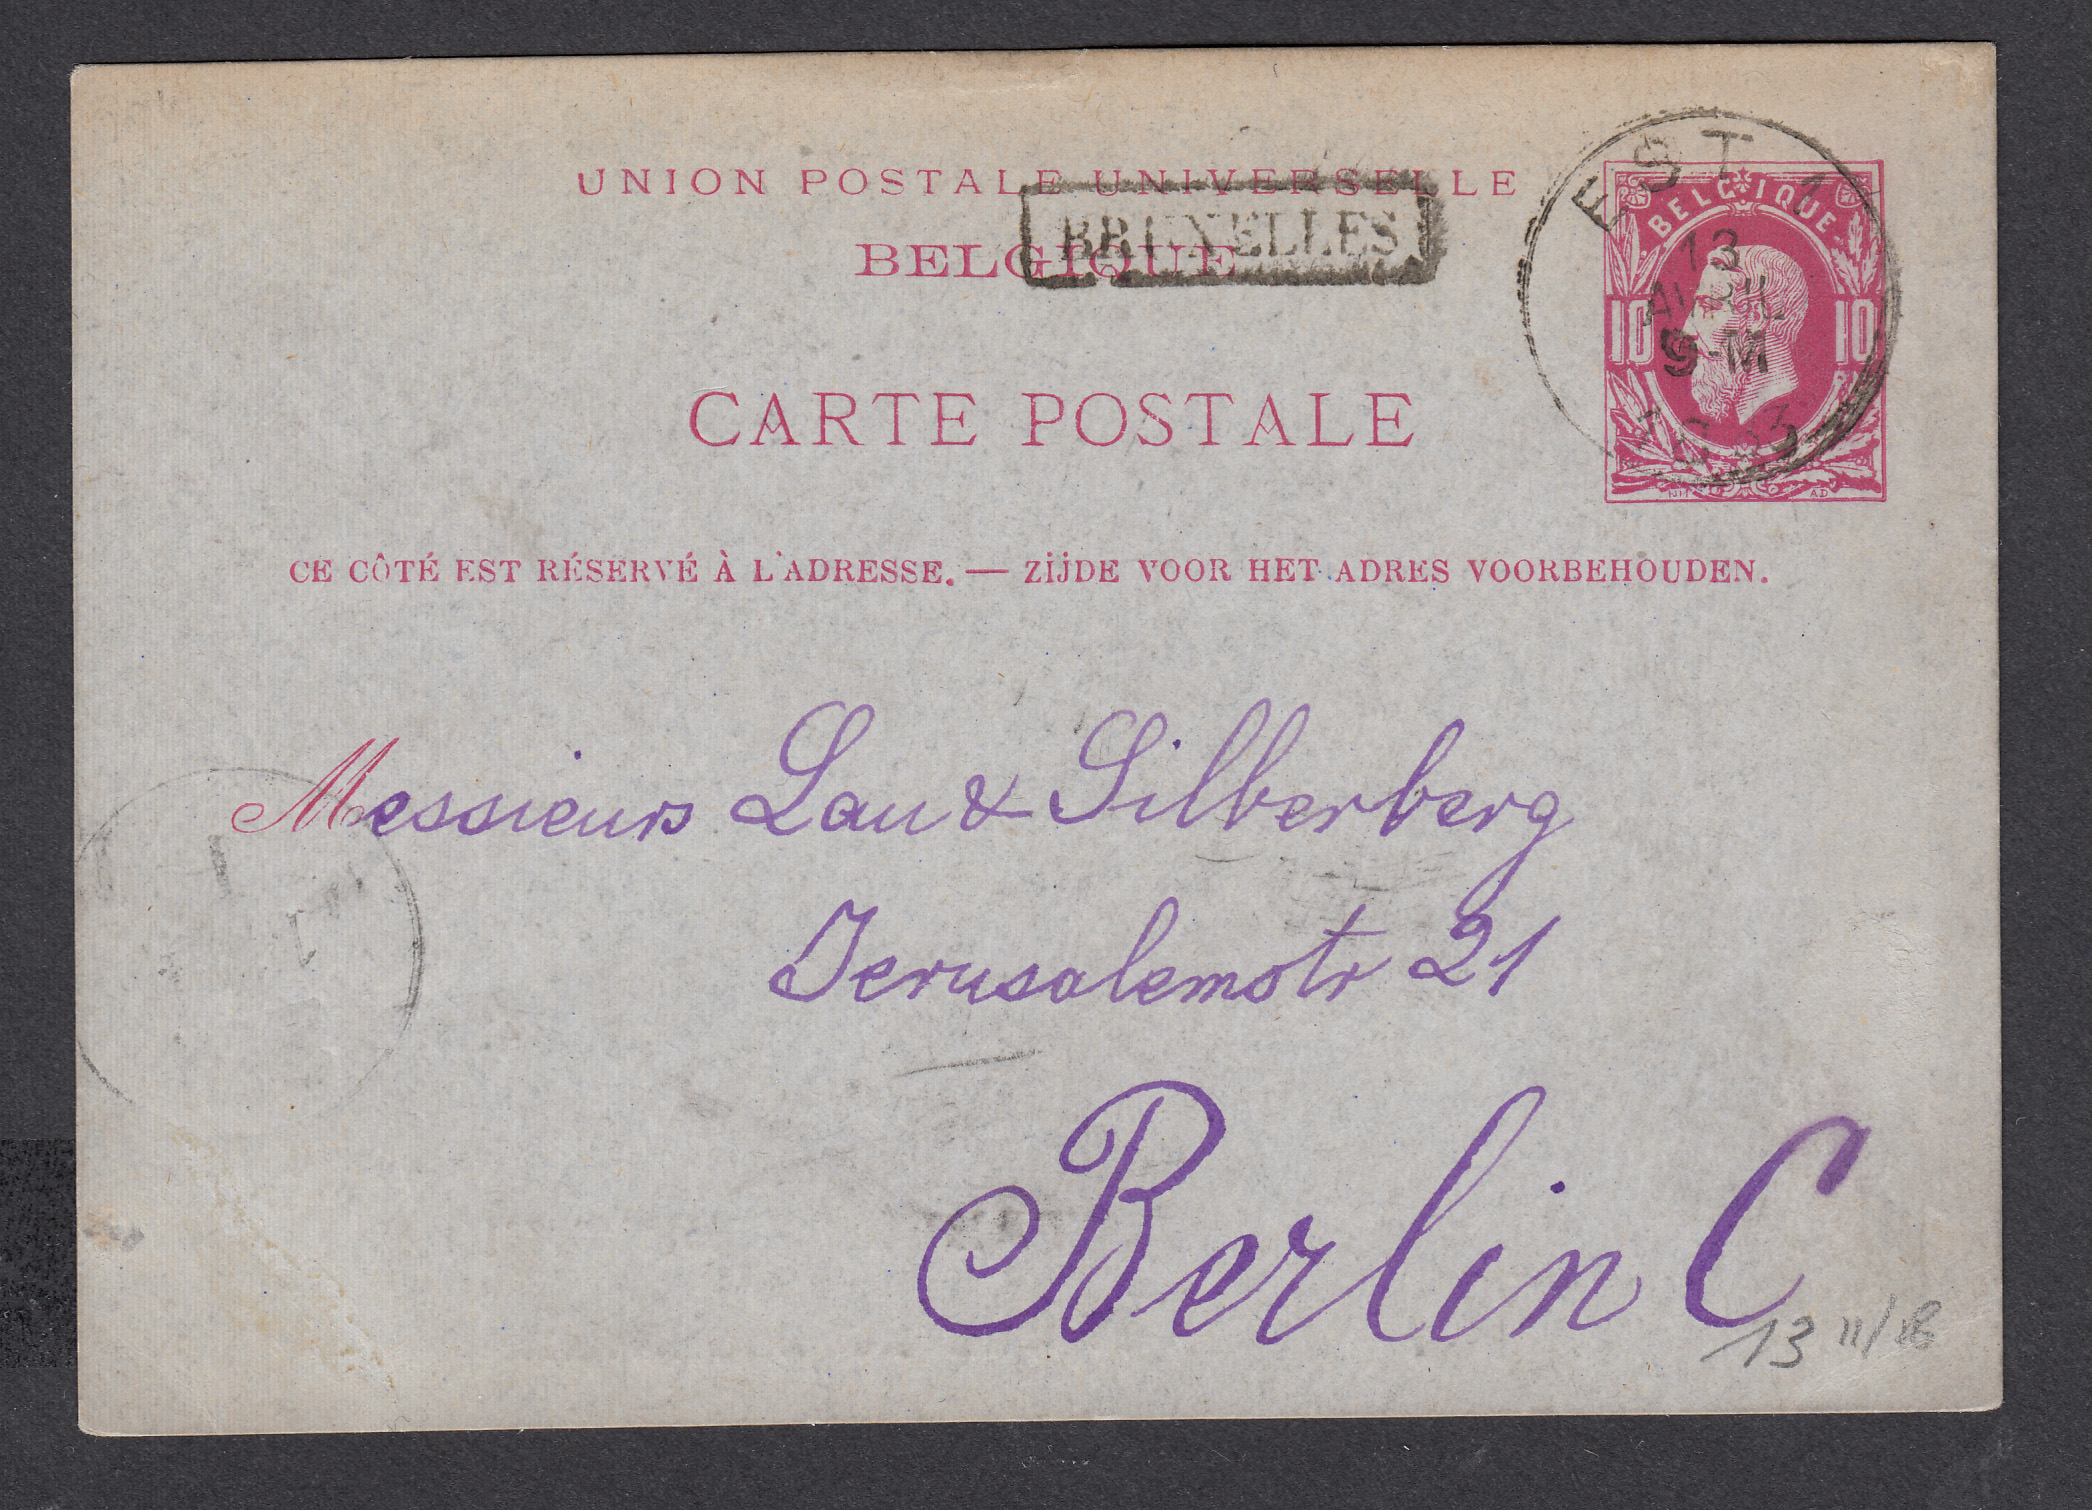 UNION POSTALE UNIVERSELLE
BRUXELLES
BELGIQUE
EST 1
13
AVRIL
9-M
BELGIQUE
10 10
CARTE POSTALE
CE CÔTÉ EST RÉSERVÉ À L'ADRESSE. — ZIJDE VOOR HET ADRES VOORBEHOUDEN.
Messieurs Lau & Silberberg
Jerusalemstr 21
Berlin C
13